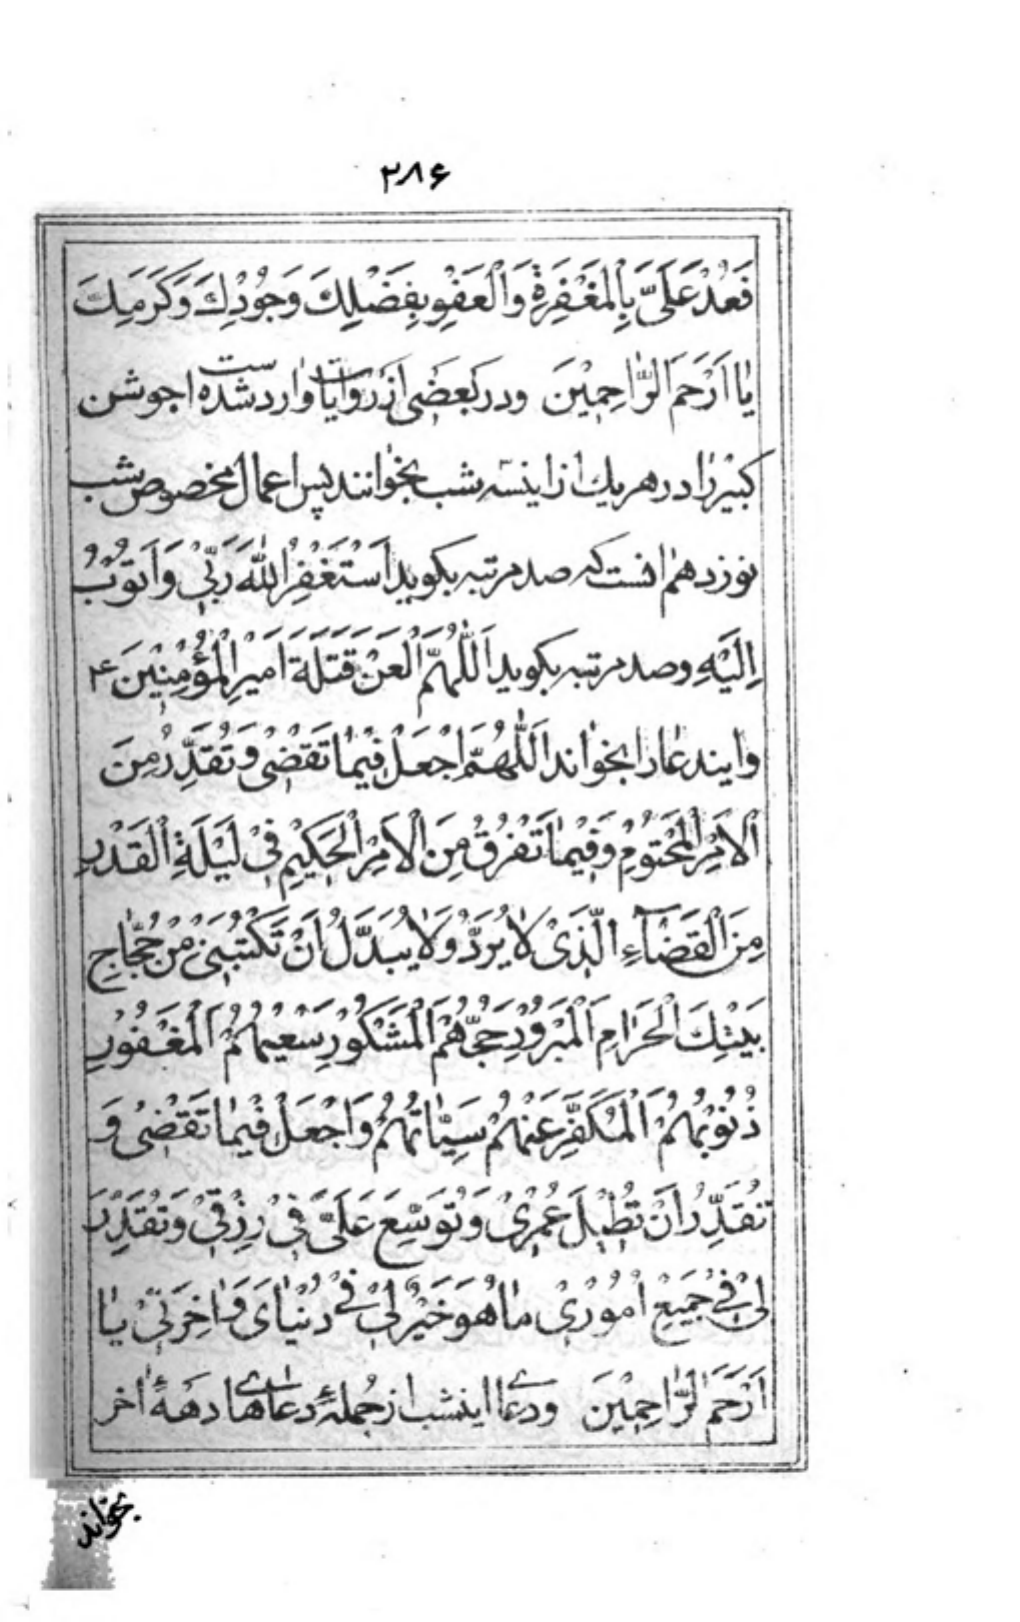 ۲۸۶
فَعُدْ عَلَيَّ بِالْمَغْفِرَةِ وَالْعَفْوِ بِفَضْلِكَ وَجُوْدِكَ وَكَرَمِكَ
يٰا اَرْحَمَ الرّٰاحِمِيْنَ ودر بعضی از روایات وارد شده است جوشن
كبیر را در هر یك از اینسه شب بخوانند پس اعمال مخصوص شب
نوزدهم انست كه صد مرتبه بكوید اَسْتَغْفِرُ اللّٰهَ رَبِّيْ وَاَتُوْبُ
اِلَيْهِ وصد مرتبه بكوید اَللّٰهُمَّ الْعَنْ قَتَلَةَ اَمِيْرِ الْمُؤْمِنِيْنَ ع
وایندعا را بخواند اَللّٰهُمَّ اجْعَلْ فِيْمٰا تَقْضِيْ وَتُقَدِّرُ مِنَ
الْاَمْرِ الْمَحْتُوْمِ وَفِيْمٰا تَفْرُقُ مِنَ الْاَمْرِ الْحَكِيْمِ فِيْ لَيْلَةِ الْقَدْرِ
مِنَ الْقَضٰآءِ الَّذِيْ لٰا يُرَدُّ وَلٰا يُبَدَّلُ اَنْ تَكْتُبَنِيْ مِنْ حُجّٰاجِ
بَيْتِكَ الْحَرٰامِ الْمَبْرُوْرِ حَجُّهُمْ الْمَشْكُوْرِ سَعْيُهُمْ الْمَغْفُوْرِ
ذُنُوْبُهُمْ الْمُكَفَّرِ عَنْهُمْ سَيِّئٰاتُهُمْ وَاجْعَلْ فِيْمٰا تَقْضِيْ وَ
تُقَدِّرُ اَنْ تُطِيْلَ عُمْرِيْ وَتُوَسِّعَ عَلَيَّ فِيْ رِزْقِيْ وَتُقَدِّرَ
لِيْ فِيْ جَمِيْعِ اُمُوْرِيْ مٰا هُوَ خَيْرٌ لِيْ فِيْ دُنْيٰايَ وَاٰخِرَتِيْ يٰا
اَرْحَمَ الرّٰاحِمِيْنَ ودعای اینشب از جملهٔ دعاهای دههٔ اخر
بخواند